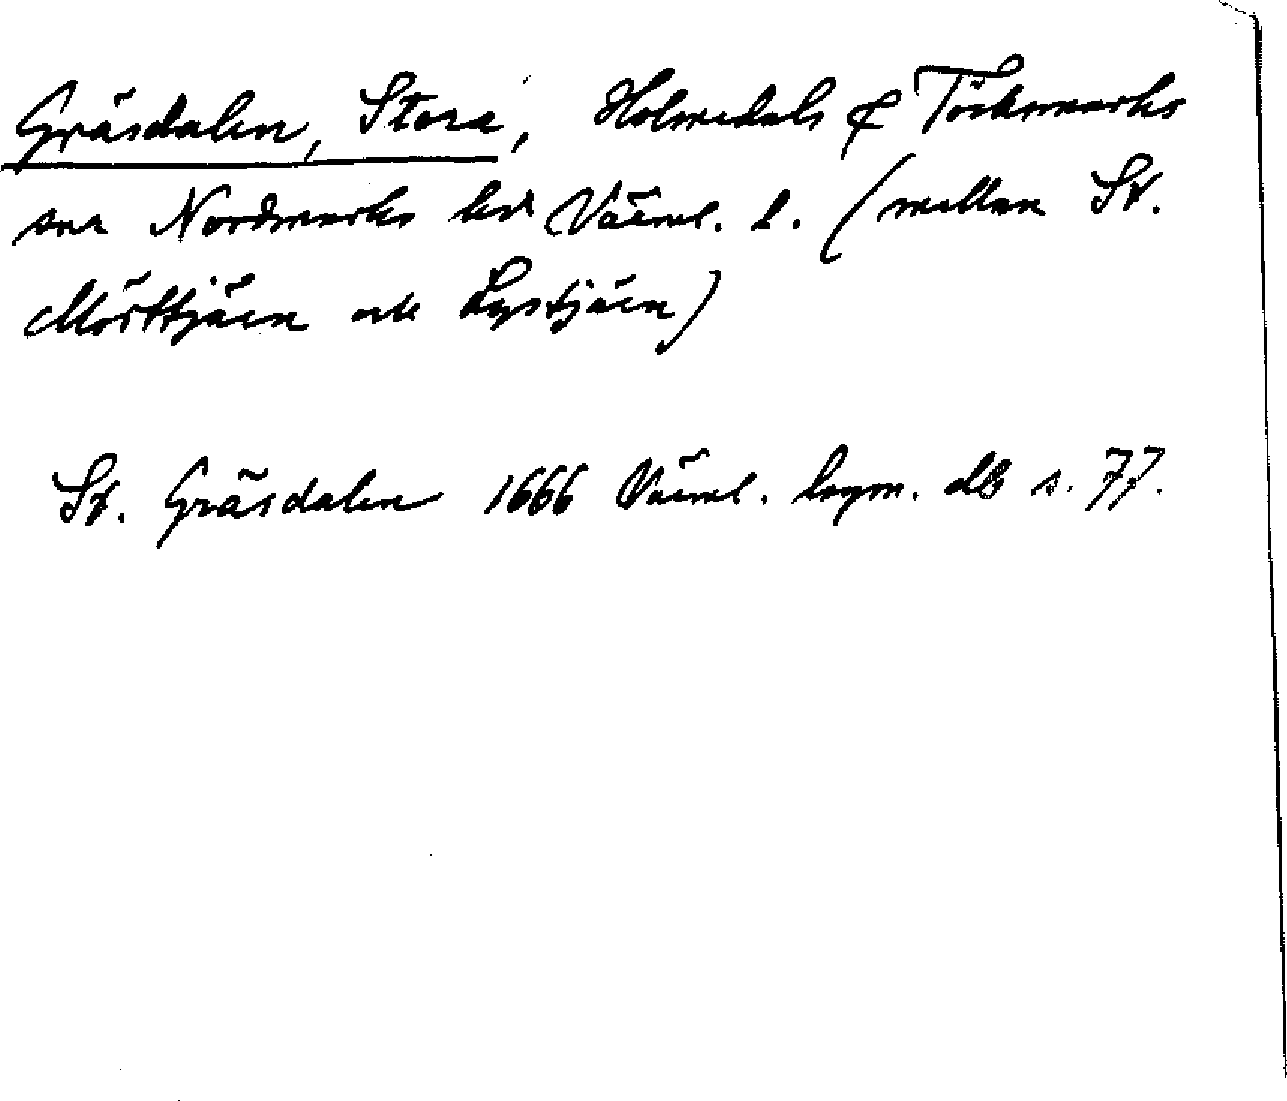 Gräsdalen, Stora, Holmedals & Töcksmarks
snr Nordmarks hd Värml. l. (mellan St.
Mörttjärn och Lystjärn)
St. Gräsdalen 1666 Värml. hygm. db s. 77.